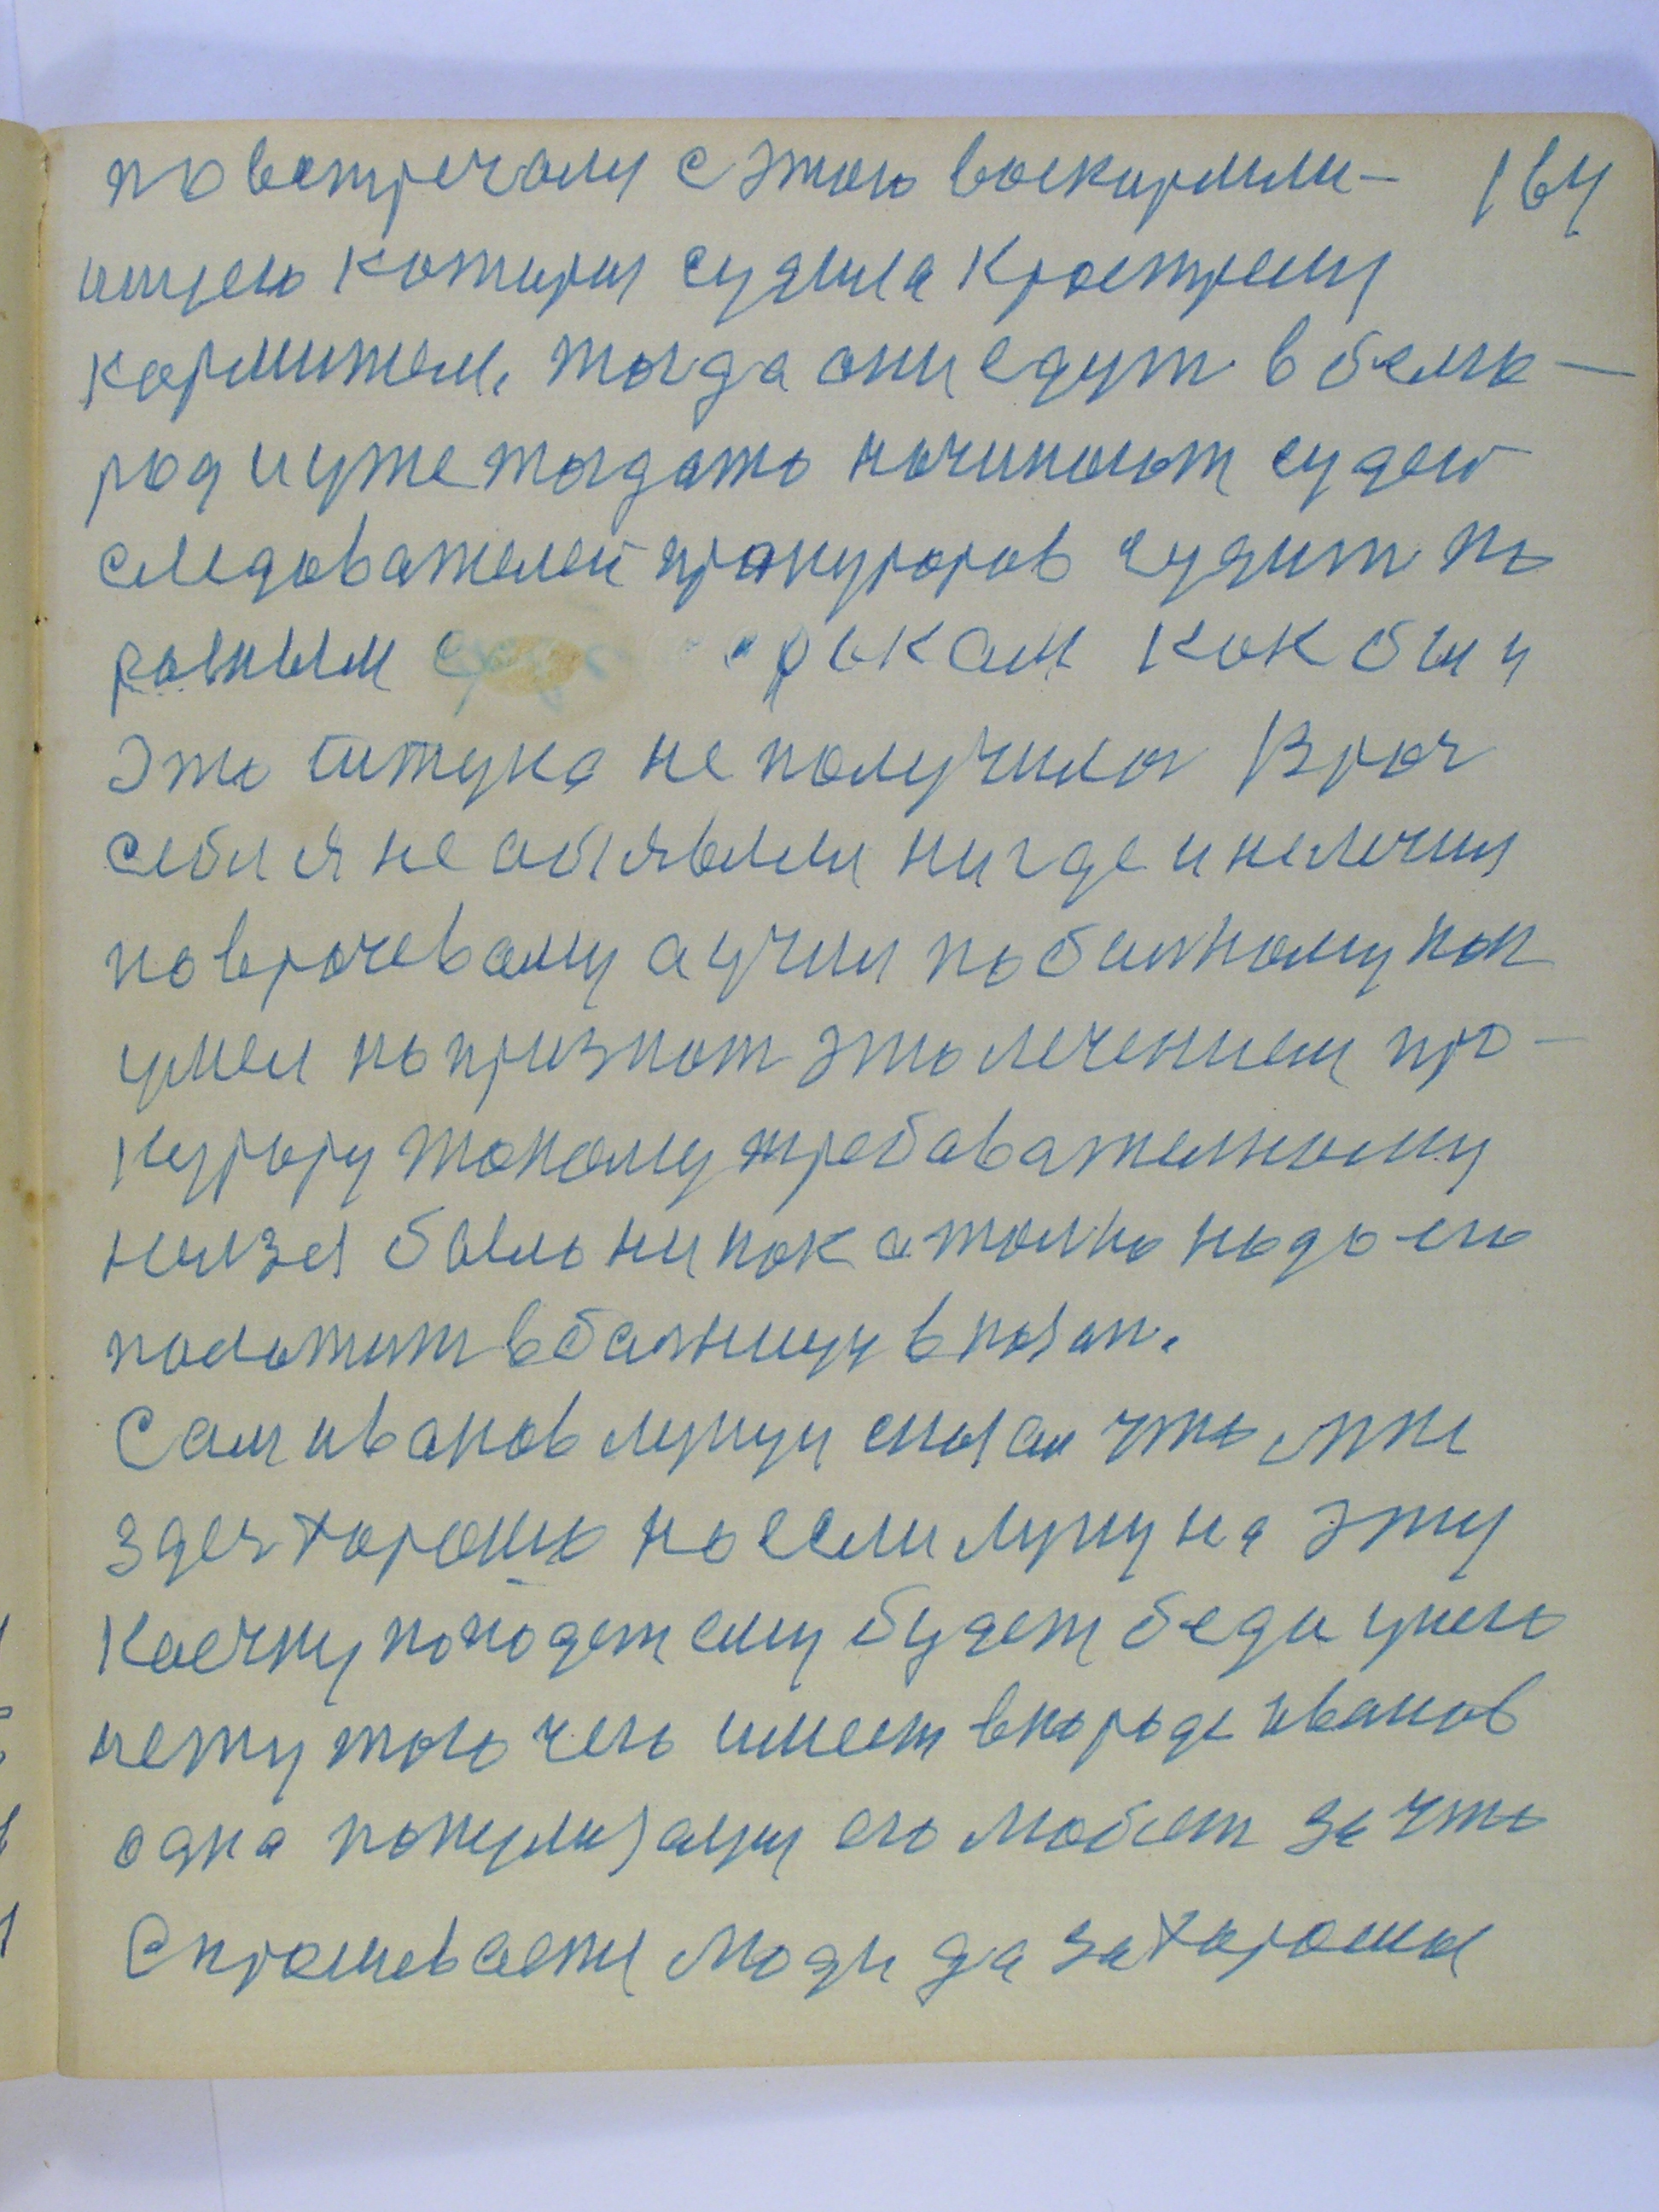 повстречали с этою воскормли- 164
ницею котирая судила к растрелу
кормители. тогда они едут в белго-
род и уже тогдато начинают судей
следователей пракуроров судит по
разным рькам как бы и
эта штука не получилас Врач
себя я не обявлял ни где и не лечил
по врачевому а учил по больному как
умел но признат это лечением про-
курору такому требавательному
нельзя было ни как а только надо его
положит в больницу в
Сам иванов лично сказал что мне
здесь хорошо но если на эту
коечку попадет ему будет беда у него
нету того чего имеет в народе иванов
одна его любит за что
Спрашеваете люди да за хорошие